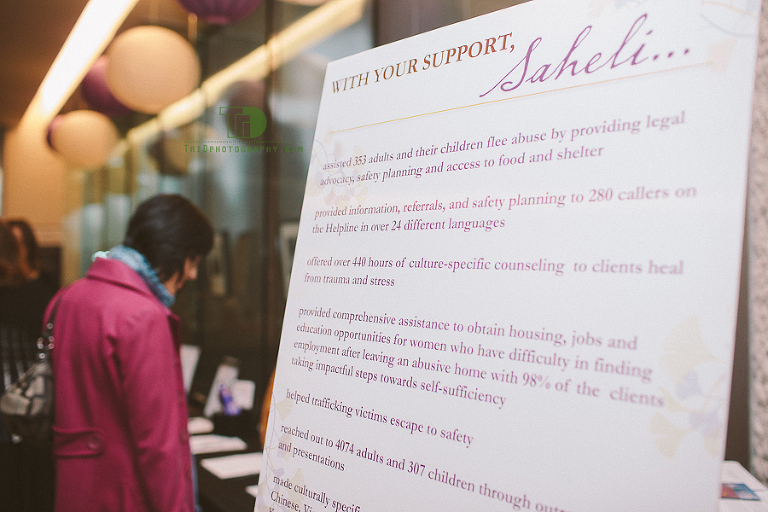 WITH YOUR SUPPORT, Saheli...
TRIDPHOTOGRAPHY.COM
assisted 353 adults and their children flee abuse by providing legal
advocacy, safety planning and access to food and shelter
provided information, referrals, and safety planning to 280 callers on
the Helpline in over 24 different languages
offered over 440 hours of culture-specific counseling to clients heal
from trauma and stress
provided comprehensive assistance to obtain housing, jobs and
education opportunities for women who have difficulty in finding
employment after leaving an abusive home with 98% of the clients
taking impactful steps towards self-sufficiency
helped trafficking victims escape to safety
reached out to 4074 adults and 307 children through
and presentations
made culturally
Chinese,